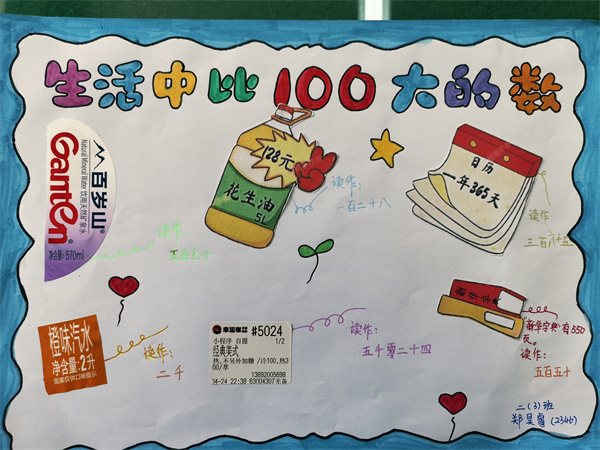 生活中比100大的数
百岁山
Ganten
Natural Mineral Water 饮用天然矿泉水
净含量:570ml
读作:
五百七十
128元
花生油
5L
读作:
一百二十八
日历
一年365天
读作
三百六十五
橙味汽水
净含量:2升
图案仅供口味提示
读作:
二千
幸运咖 #5024
小程序 自提 1/2
经典美式
热,不另外加糖 /冷100,热3
00/单
13892005698
04-24 22:38 63004307无备
读作:
五千零二十四
新华字典
新华字典有550
页。
读作:
五百五十
二(3)班
郑昊睿(2346)